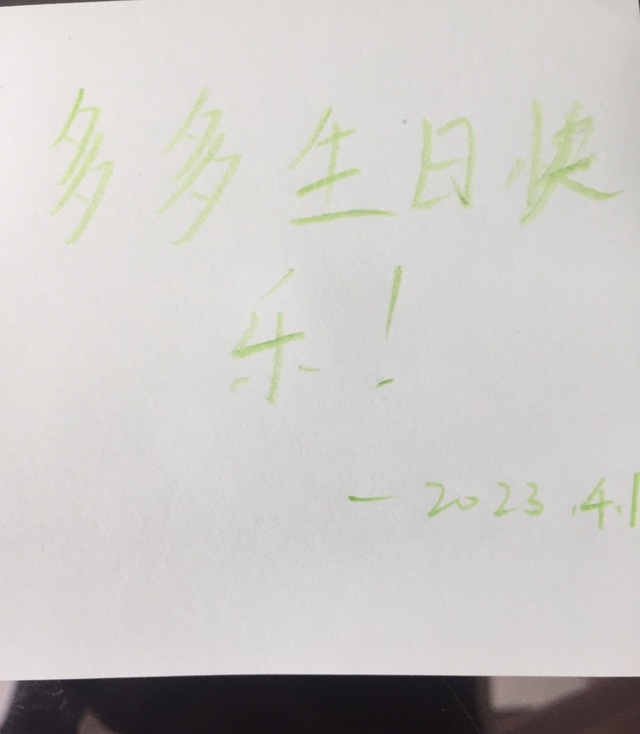 多多生日快
乐！
—2023.4.1